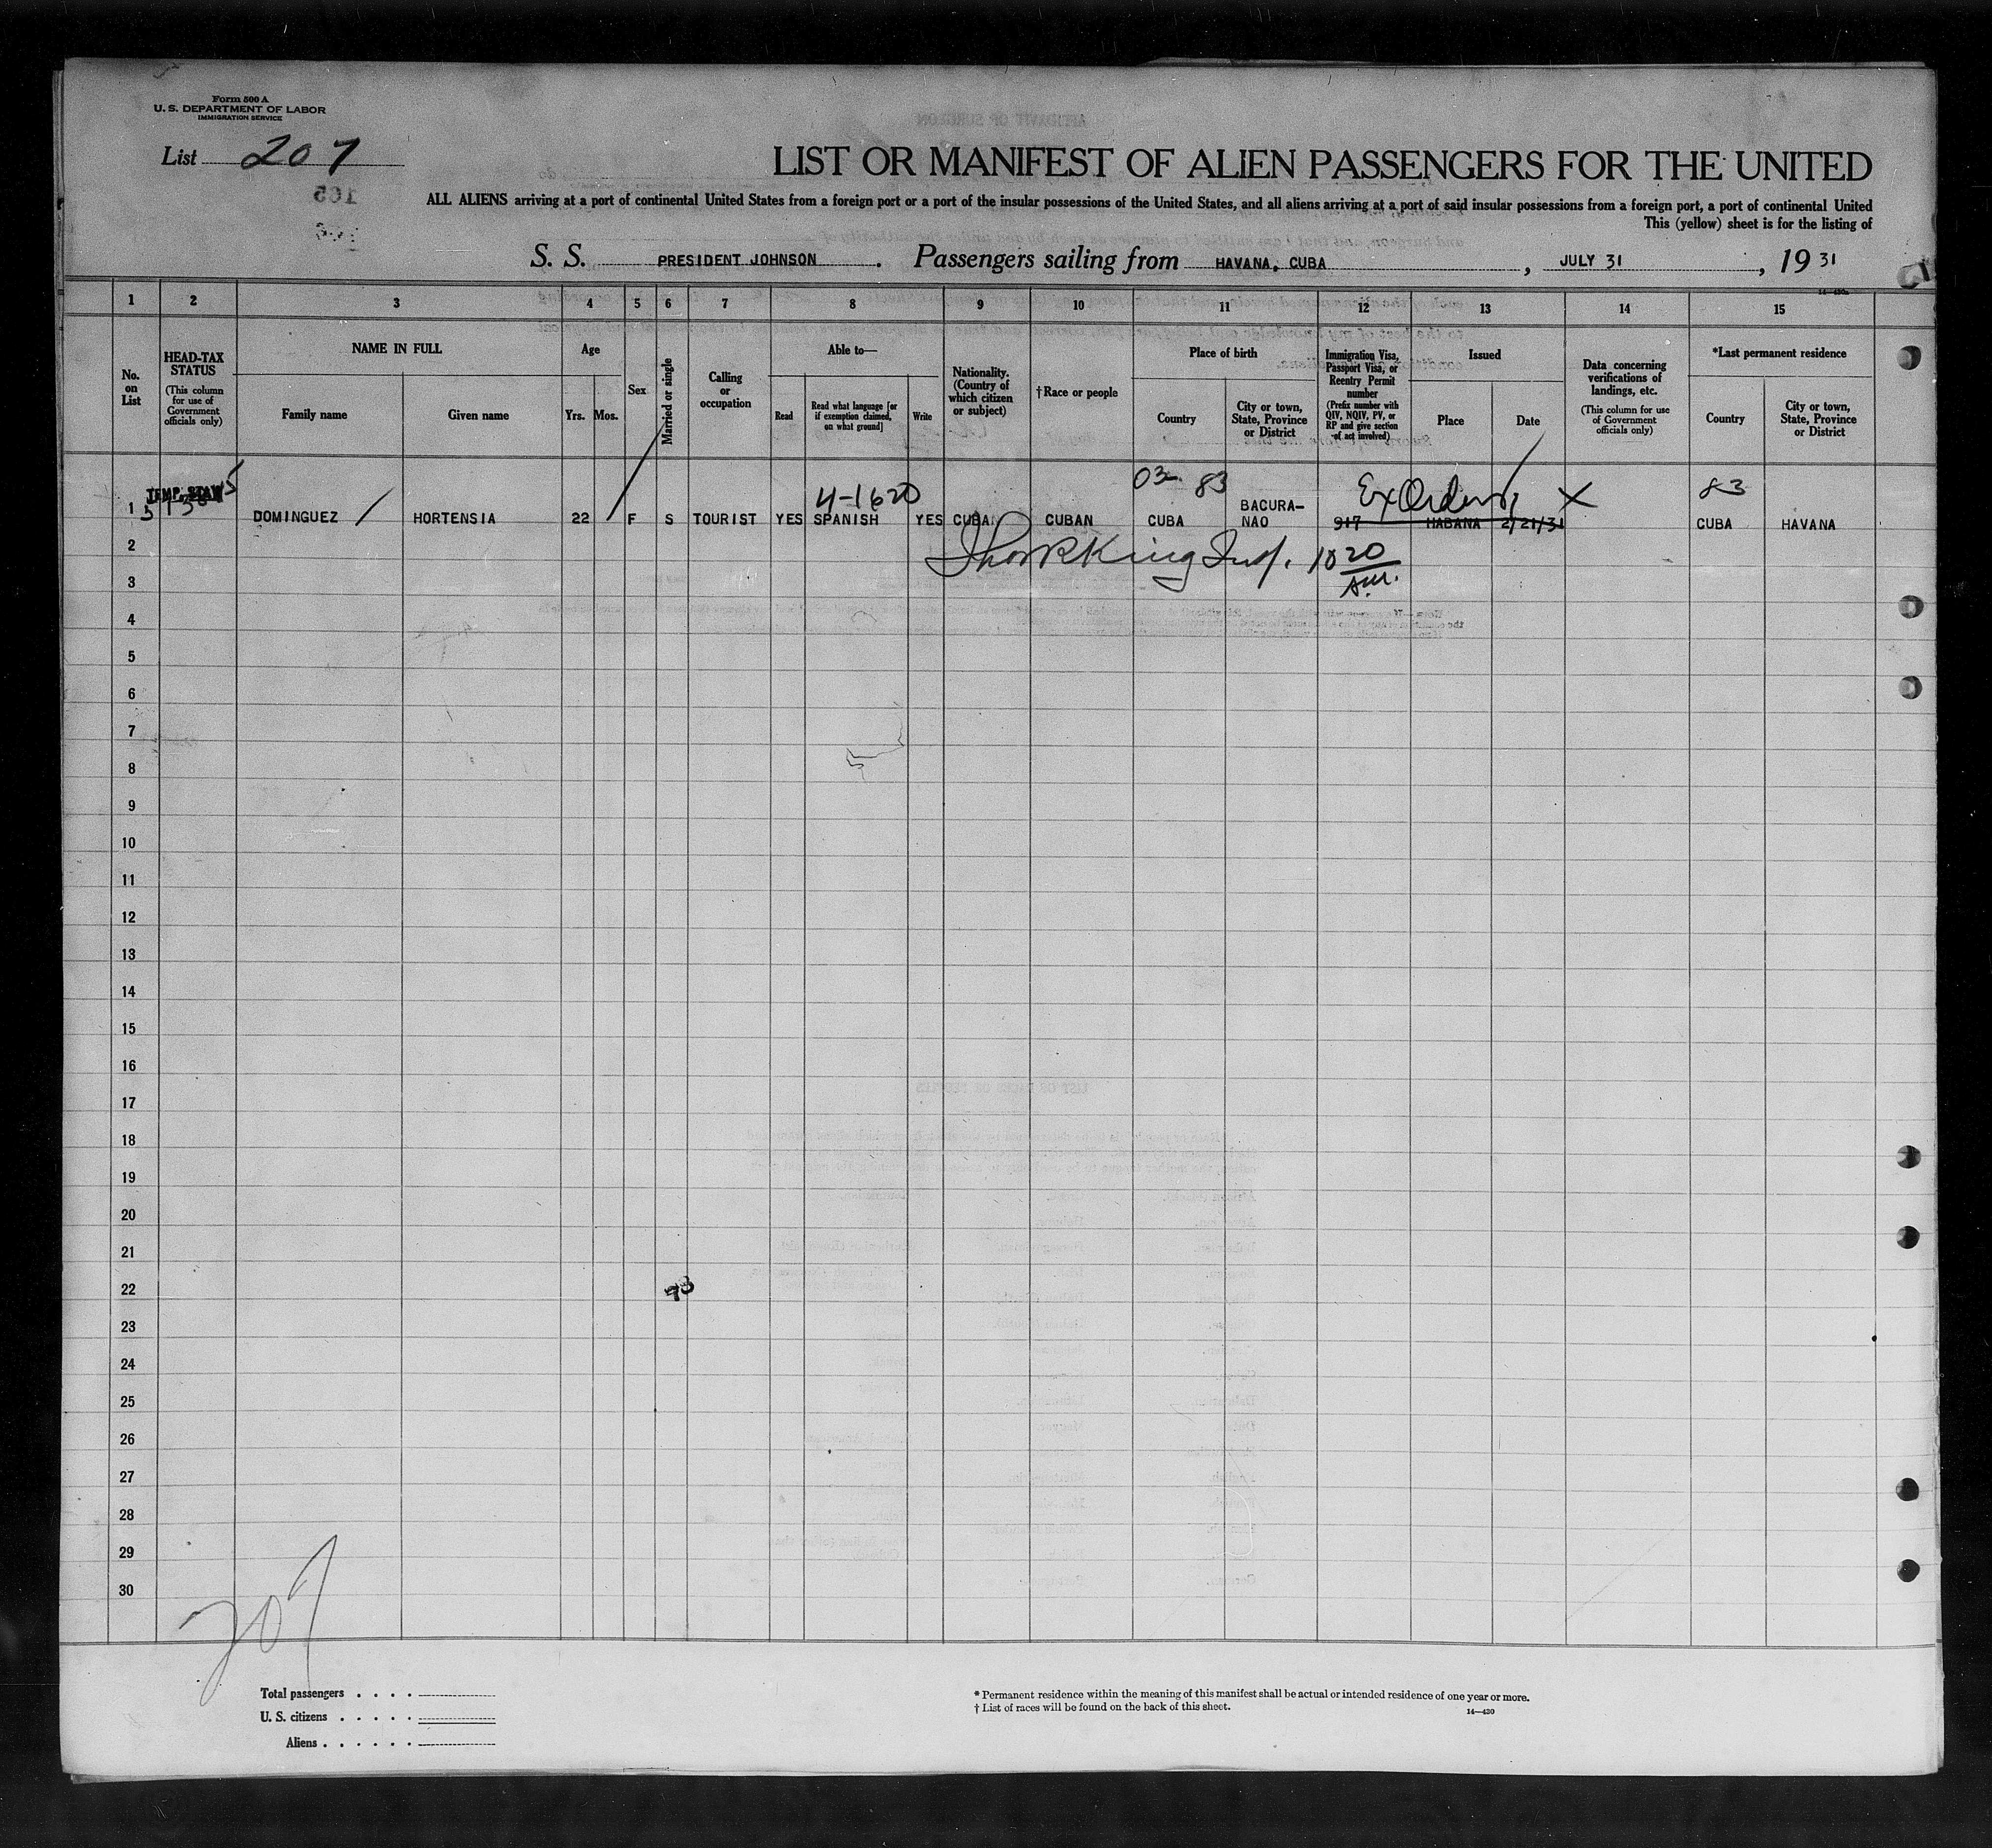 Form 500 A
U. S. DEPARTMENT OF LABOR
IMMIGRATION SERVICE
List 207
LIST OR MANIFEST OF ALIEN PASSENGERS FOR THE UNITED
ALL ALIENS arriving at a port of continental United States from a foreign port or a port of the insular possessions of the United States, and all aliens arriving at a port of said insular possessions from a foreign port, a port of continental United
This (yellow) sheet is for the listing of
S. S. PRESIDENT JOHNSON. Passengers sailing from HAVANA, CUBA, JULY 31, 19 31
1 2 3 4 5 6 7 8 9 10 11 12 13 14 15
No. on List
HEAD-TAX STATUS
(This column for use of Government officials only)
NAME IN FULL
Family name
Given name
Age
Yrs. Mos.
Sex
Married or single
Calling or occupation
Able to—
Read
Read what language [or if exemption claimed, on what ground]
Write
Nationality. (Country of which citizen or subject)
† Race or people
Place of birth
Country
City or town, State, Province or District
Immigration Visa, Passport Visa, or Reentry Permit number
(Prefix number with QIV, NQIV, PV, or RP and give section of act involved)
Issued
Place
Date
Data concerning verifications of landings, etc.
(This column for use of Government officials only)
*Last permanent residence
Country
City or town, State, Province or District
TEMP. STAY
4-1620
83
Ex Order
X
83
1 DOMINGUEZ / HORTENSIA 22 F S TOURIST YES SPANISH YES CUBA CUBAN CUBA BACURA-NAO 917 HABANA 2/21/31 CUBA HAVANA
2 King 10 20
3
4
5
6
7
8
9
10
11
12
13
14
15
16
17
18
19
20
21
22
23
24
25
26
27
28
29
30
207
Total passengers . . . .
U. S. citizens . . . . .
Aliens . . . . . .
* Permanent residence within the meaning of this manifest shall be actual or intended residence of one year or more.
† List of races will be found on the back of this sheet.
14—430